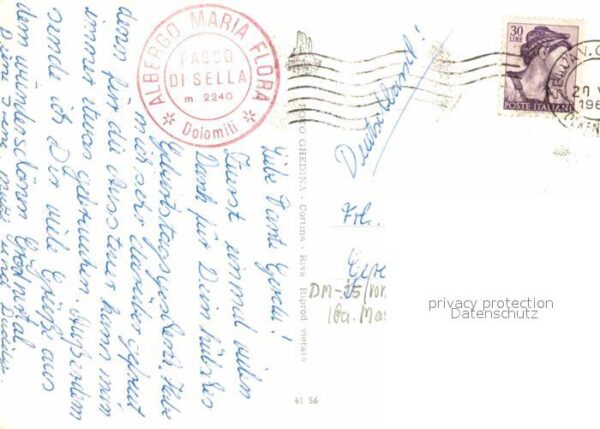 Liebe Tant Gerda!
Zuerst einmal vielen
Dank für Dein hübsches
Geburtstagsgeschenk. Habe
mich sehr darüber gefreut
denn für die Aussteuer kann man
immer etwas gebrauchen. Außerdem
sende ich Dir viele Grüße aus
dem wunderschönen Grödnertal
Deine
und
ALBERGO MARIA FLORA
PASSO
DI SELLA
m 2240
Dolomiti
FOTO GHEDINA - Cortina - Riva - Riprod. vietata
41 56
30
LIRE
POSTE ITALIANE
SELVA V.G.
Deutschland!
Frl.
DM-
privacy protection
Datenschutz